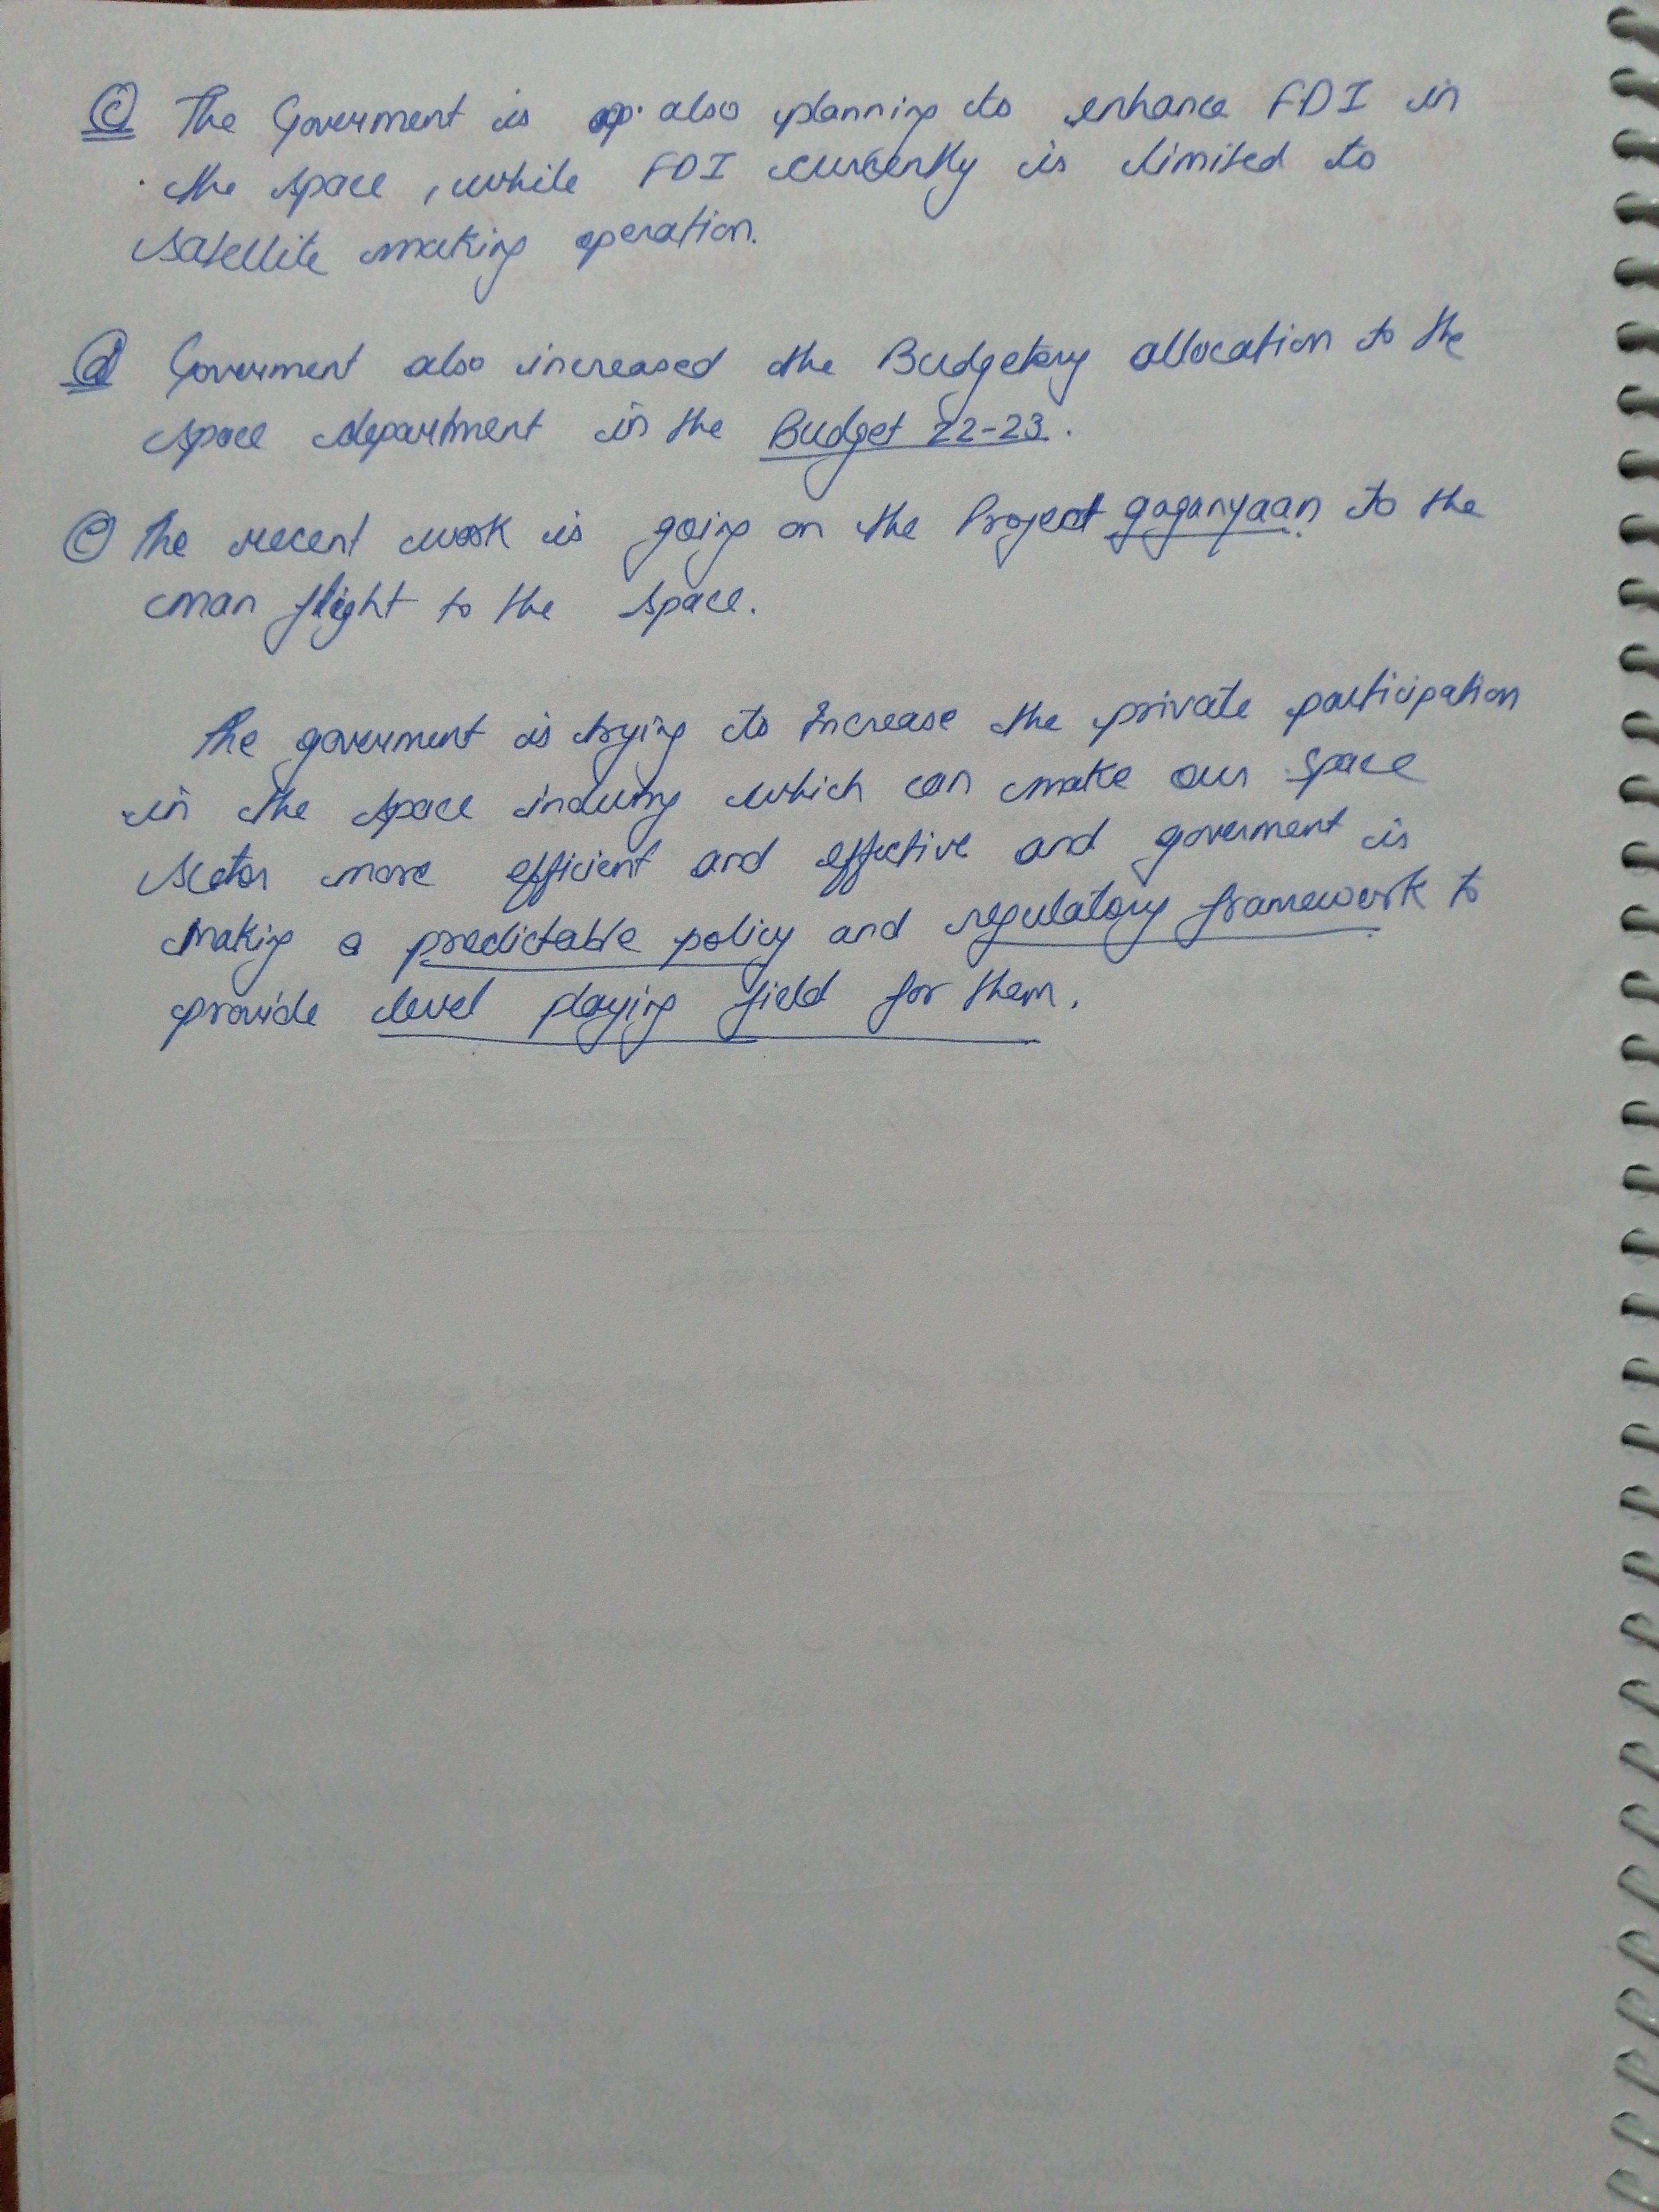 (c) The Goverment is op. also planning to enhance FDI in
the space, while FDI currently is limited to
satellite making operation.
(d) Goverment also increased the Budgetary allocation to the
space department in the Budget 22-23.
(e) The recent work is going on the Project gaganyaan to the
man flight to the space.
The goverment is trying to Increase the private participation
in the space industry which can make our space
sector more efficient and effective and goverment is
making a predictable policy and regulatory framework to
provide level playing field for them.